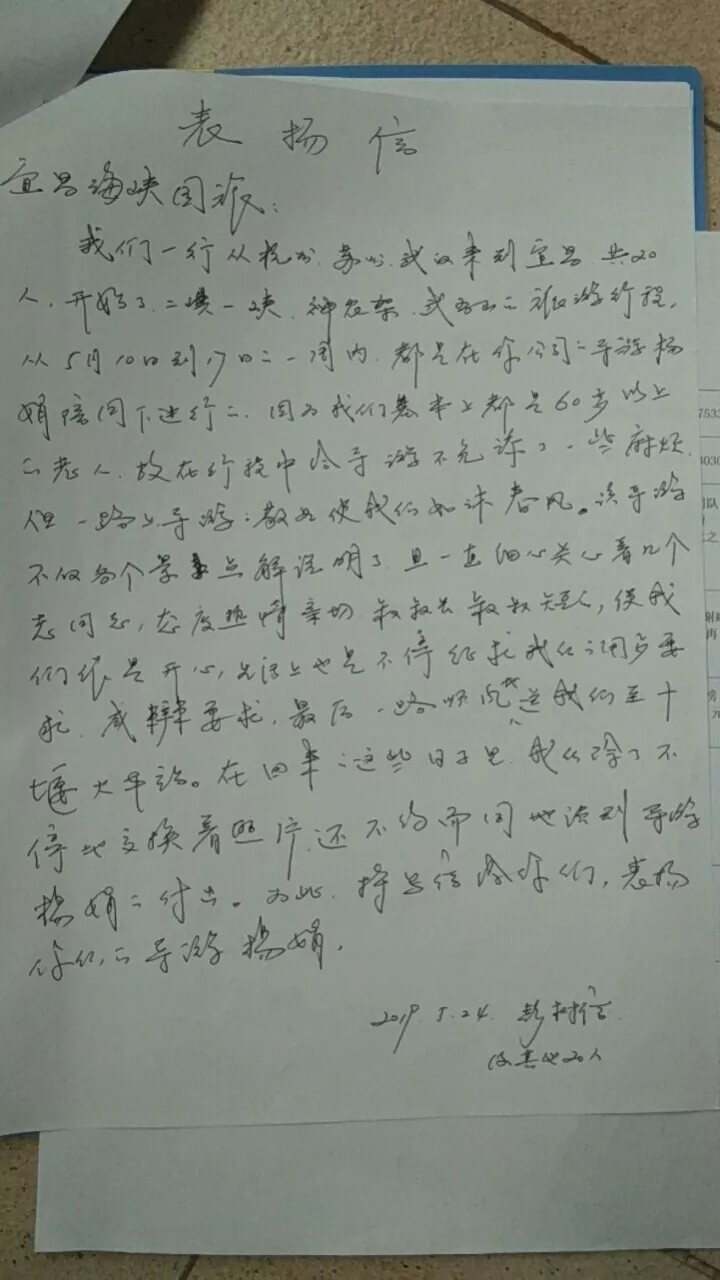 表扬信
宜昌海峡国旅：
我们一行从杭州、苏州、武汉来到宜昌，共20
人，开始了二坝一峡、神农架、武当山之旅游行程，
从5月10日到17日之一周内，都是在你公司之导游杨
娟陪同下进行之，因为我们基本上都是60岁以上
之老人，故在行程中给导游不免添了一些麻烦，
但一路上导游之敬业使我们如沐春风。该导游
不仅各个景点解说明了，且一直细心关心着几个
老同志，态度热情亲切，叔叔长叔叔短，使我
们很是开心，生活上也是不停征求我们之调步要
求，咸辣要求，最后一路顺风送我们至十
堰火车站。在回来之这些日子里，我们除了不
停地交换着照片，还不约而同地谈到导游
杨娟之付出。为此，特具信给你们，表扬
你们之导游杨娟。
2019.5.24 彭树信
及其他20人
7533